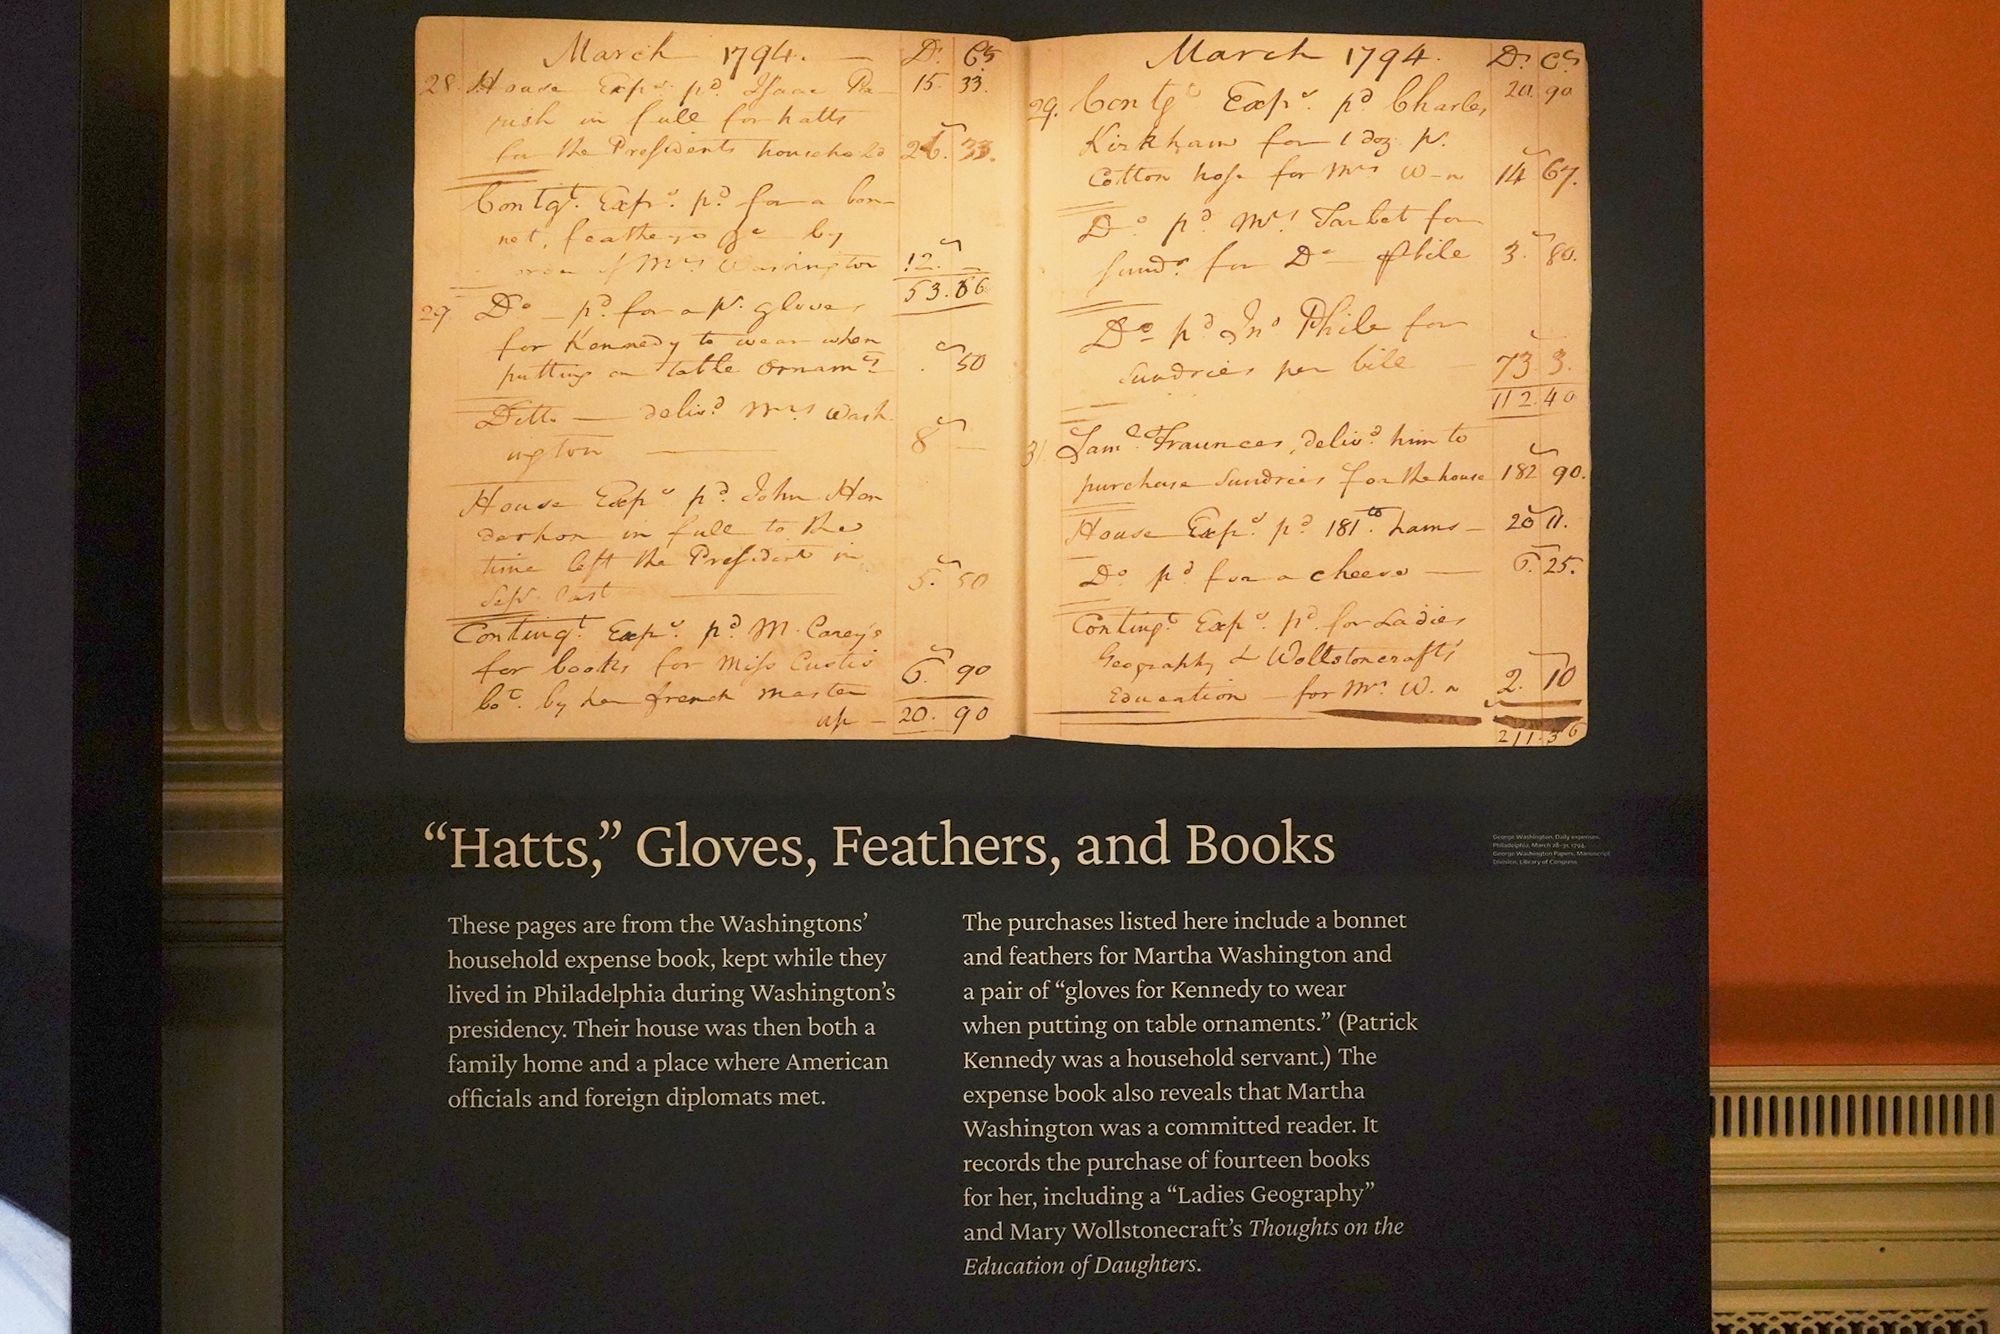 March 1794. — D.s Cts
28 House Exps. pd. Isaac Pa- 15. 33.
rish in full for hatts
for the Presidents household 26. 33.
Contgt. Exps. pd. for a bon-
net, feathers &c by
order of Mrs Washington 12. —
53.66
29 Do — pd. for a pr. gloves
for Kennedy to wear when
putting on table Ornamts . 50
Ditto — delivd Mrs Wash-
ington — 8 —
House Exps pd. John Han
in full to the
time left the President in
Sepr. last — 5. 50
Contingt Exps. pd M. Carey's
for books for Miss Custis
bot. by her french master 6. 90
up — 20. 90
March 1794. Ds Cts
20. 90
29. Contgt Exps. pd Charles
Kirkham for 1 doz. pr.
Cotton hose for Mrs W-n 14 67.
Do pd Mrs Tarbet for
sunds. for Do — 3. 80.
Do pd Jno Phile for
Sundries per bill — 73. 3.
112.40
31 Saml Fraunces, delivd him to
purchase Sundries for the house 182 90.
House Exps. pd 181 lb hams — 20 11.
Do pd for a cheese — 6. 25.
Contingt Exps. pd. for Ladies
Geography & Wollstonecrafts
Education — for Mrs W.n 2. 10
211.36
“Hatts,” Gloves, Feathers, and Books
George Washington, Daily expenses,
Philadelphia, March 28–31, 1794.
George Washington Papers, Manuscript
Division, Library of Congress
These pages are from the Washingtons’
household expense book, kept while they
lived in Philadelphia during Washington’s
presidency. Their house was then both a
family home and a place where American
officials and foreign diplomats met.
The purchases listed here include a bonnet
and feathers for Martha Washington and
a pair of “gloves for Kennedy to wear
when putting on table ornaments.” (Patrick
Kennedy was a household servant.) The
expense book also reveals that Martha
Washington was a committed reader. It
records the purchase of fourteen books
for her, including a “Ladies Geography”
and Mary Wollstonecraft’s Thoughts on the
Education of Daughters.